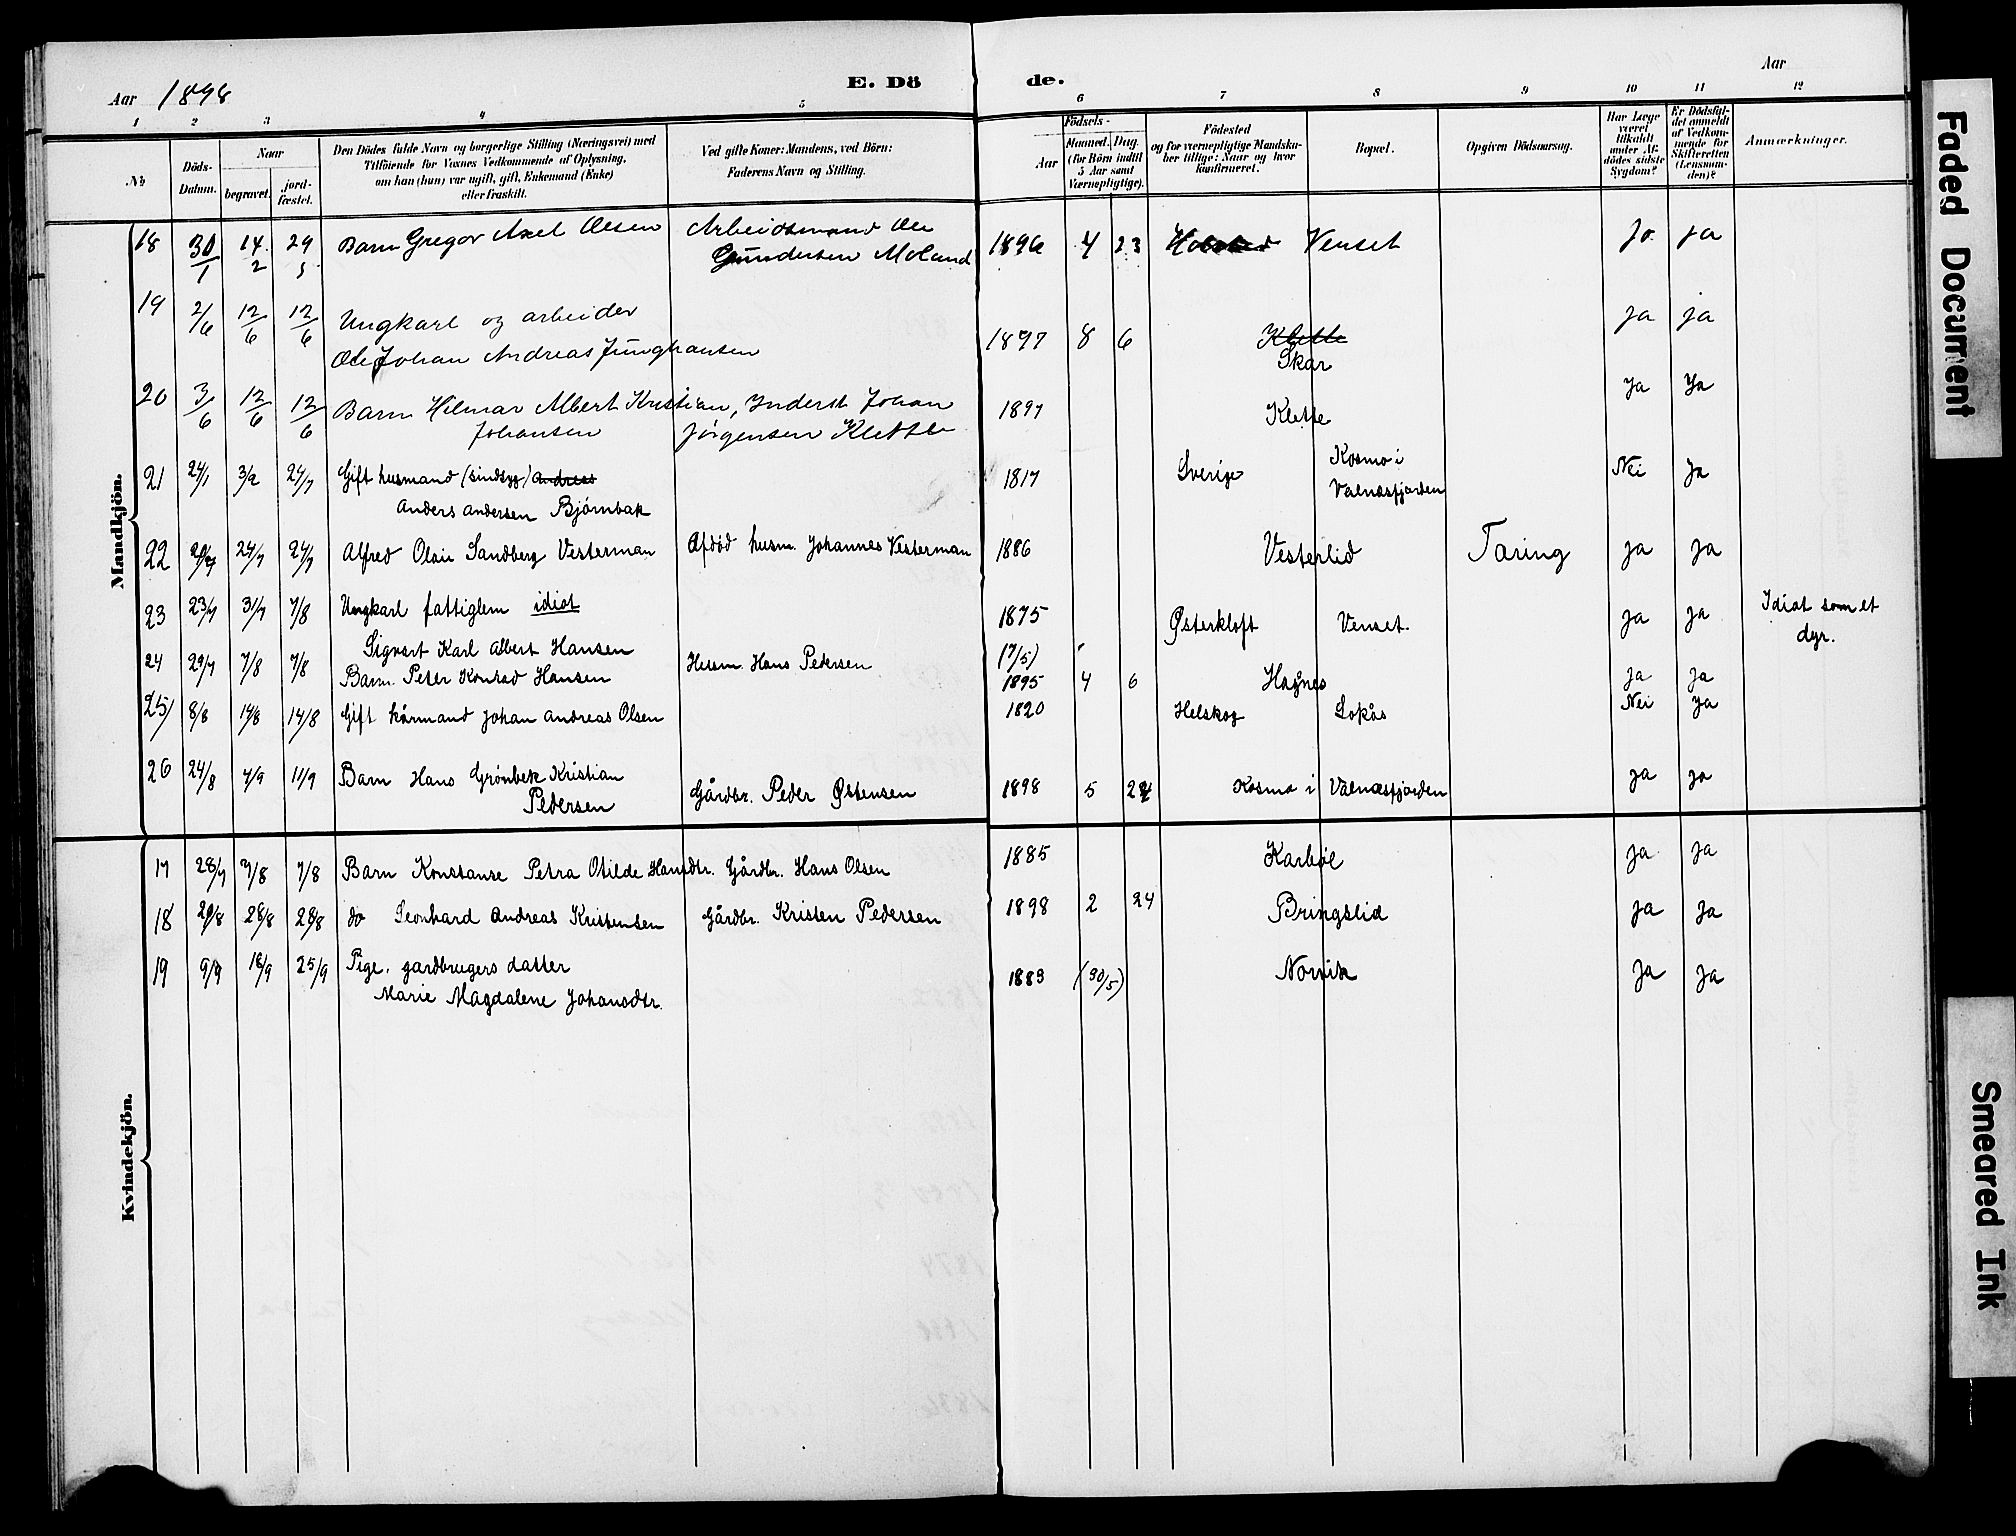 Aar 1898
E. Dö de.
Aar
1 2 3 4 5 6 7 8 9 10 11 12
No
Döds-Datum.
Naar
begravet.
jord-fæstet.
Den Dödes fulde Navn og borgerlige Stilling (Næringsvei) med
Tilföiende for Voxnes Vedkommende af Oplysning,
om han (hun) var ugift, gift, Enkemand (Enke)
eller fraskilt.
Ved gifte Koner: Mandens, ved Börn:
Faderens Navn og Stilling.
Födsels-
Aar
Maaned. Dag.
(for Börn indtil
5 Aar samt
Værnepligtige).
Födested
og for værnepligtige Mandska-
ber tillige: Naar og hvor
konfirmeret.
Bopæl.
Opgiven Dödsaarsag.
Har Læge
været
tilkaldt
under Af-
dödes sidste
Sygdom?
Er Dödsfal-
det anmeldt
af Vedkom-
mende for
Skifteretten
(Lensman-
den)?
Anmærkninger.
Mandkjön.
18 30/1 14/2 29/5 Barn Gregor Axel Olsen Arbeidsmand Ole 1896 4 23 Venset Ja ja
Gundersen Moland
19 2/6 12/6 12/6 Ungkarl og arbeider 1897 8 6 Klette ja ja
Ole Johan Andreas Junghansen Skar
20 3/6 12/6 12/6 Barn Hilmar Albert Kristian, Inderst Johan 1897 Klette Ja Ja
Johansen Jörgensen Klette
21 24/1 3/2 24/7 Gift husmand (sindsyg) Andreas 1817 Sverige Kosmo i Nei Ja
Anders Andersen Bjørnbak Valnæsfjorden
22 20/7 24/7 24/7 Alfred Olai Sandberg Vesterman Afdød husm. Johannes Vesterman 1886 Vesterlid Tæring ja ja
23 23/7 31/7 7/8 Ungkarl fattiglem idiot 1875 Østerkloft Venset. ja ja Idiot som et
Sigvart Karl Albert Hansen (17/5) dyr.
24 29/7 7/8 7/8 Barn. Peter Konrad Hansen Husm. Hans Pedersen 1895 4 6 Hagnes ja ja
25 8/8 14/8 14/8 Gift kårmand Johan Andreas Olsen 1820 Helskog Løkås Nei Ja
26 24/8 4/9 11/9 Barn Hans Grönbek Kristian 1898 5 Kosmo i Valnæsfjorden ja ja
Pedersen Gårdbr. Peder Østensen
Kvindekjön.
17 28/7 7/8 7/8 Barn Konstanse Petra Otilde Hansdtr. Gårdbr. Hans Olsen 1885 Karbøl ja ja
18 20/8 28/8 28/8 do Leonhard Andreas Kristensen Gårdbr. Kristen Pedersen 1898 2 24 Bringslid ja ja
19 9/9 18/9 25/9 Pige, gardbrugers datter 1883 (30/5) Norvik ja ja
Marie Magdalene Johansdtr.
Faded Document
Smeared Ink